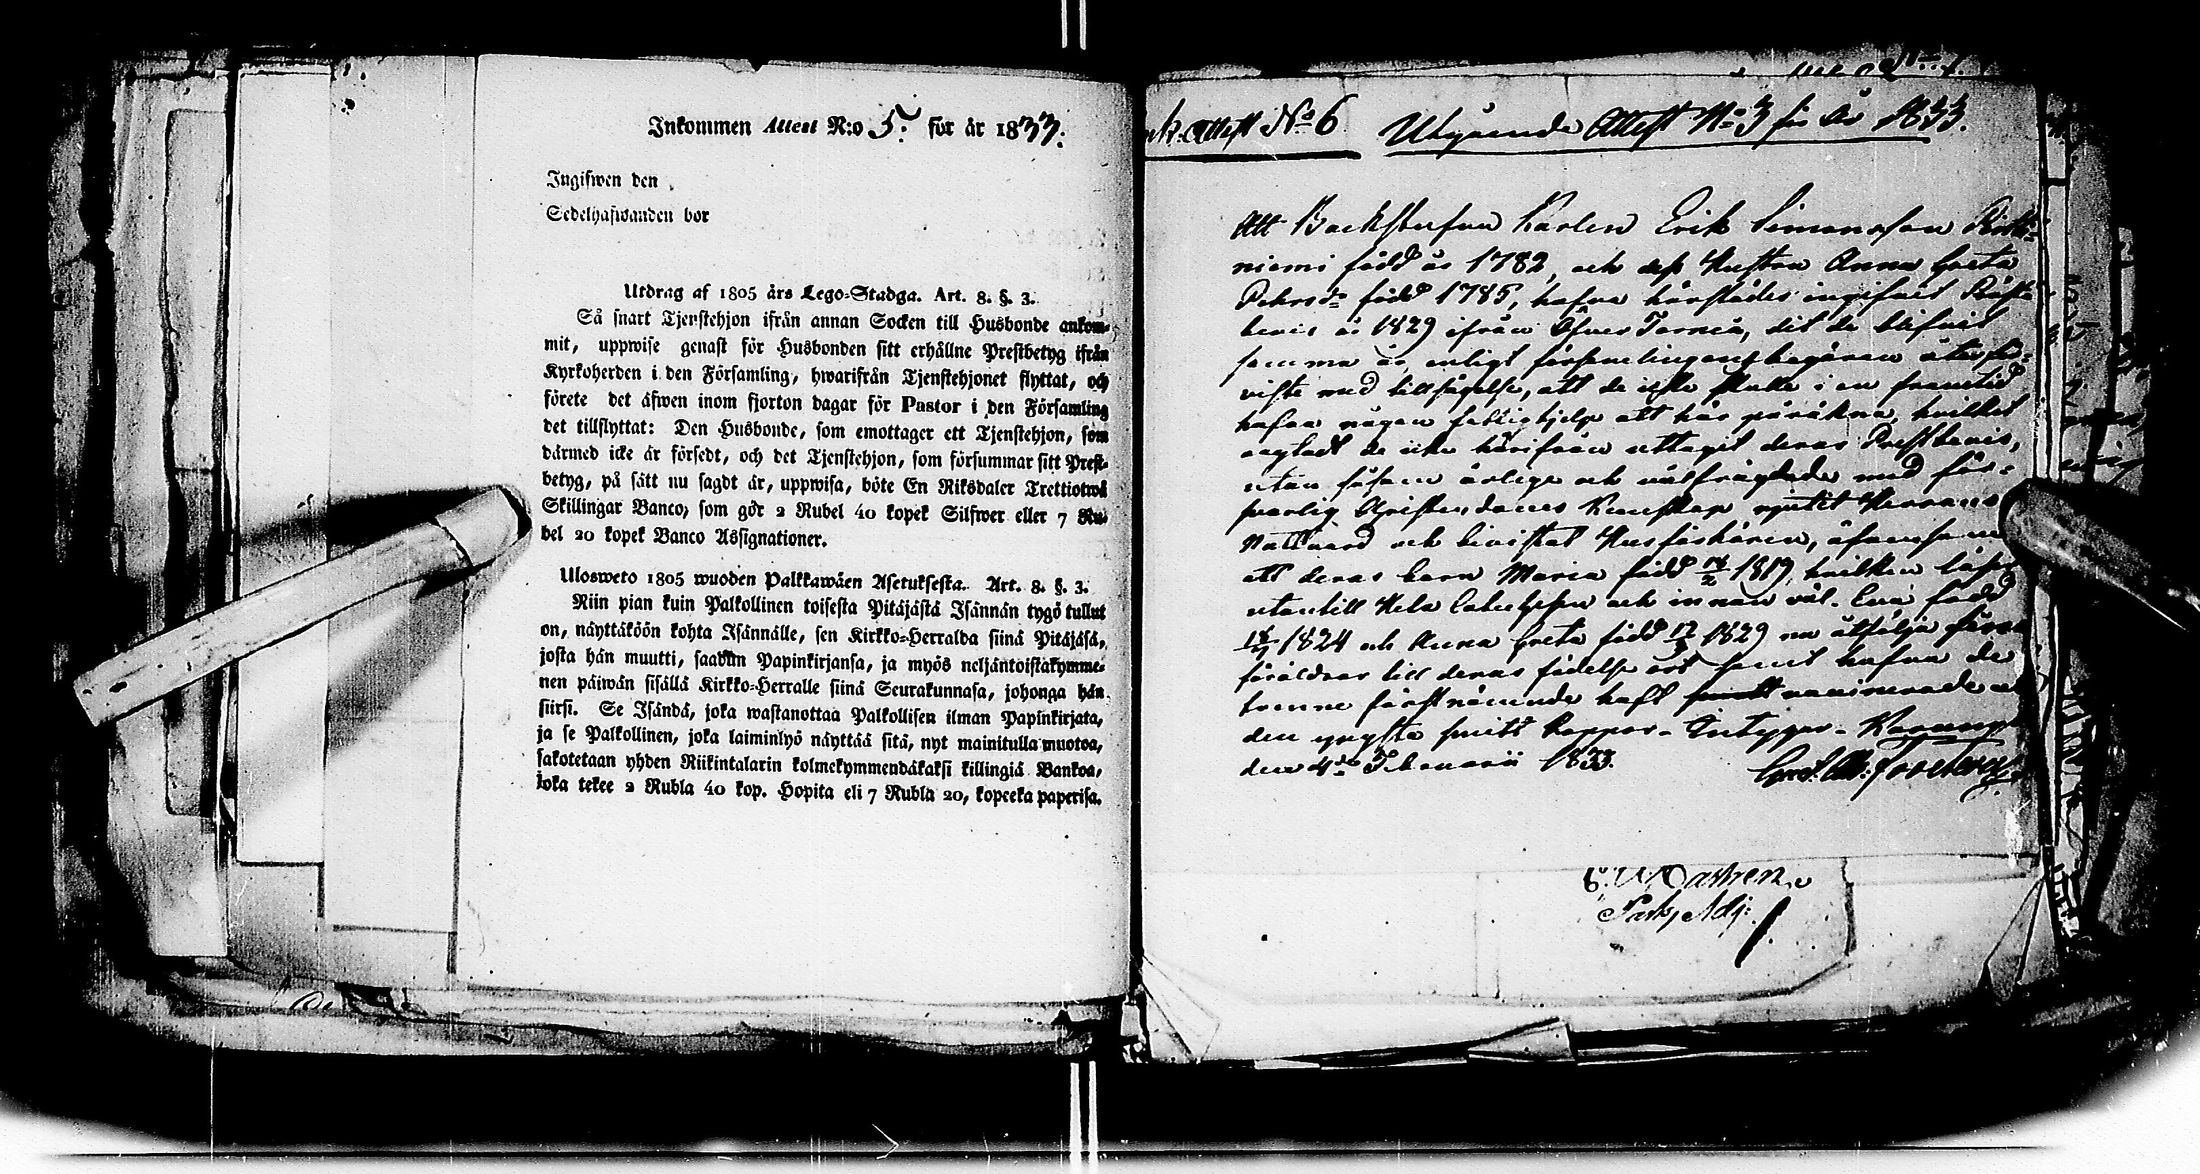 Inkommen Attest N:o 5. for år 1833.
Ingifwen den
Sedelhafwanden bor
Utdrag af 1805 års Lego-Stadga. Art. 8. §. 3.
Så snart Tjenstehjon ifrån annan Socken till Husbonde ankom-
mit, uppwise genast för Husbonden sitt erhållne Prestbetyg ifrån
Kyrkoherden i den Församling, hwarifrån Tjenstehjonet flyttat, och
förete det äfwen inom fjorton dagar för Pastor i den Församling
det tillflyttat: Den Husbonde, som emottager ett Tjenstehjon, som
därmed icke är försedt, och det Tjenstehjon, som försummar sitt Prest-
betyg, på sätt nu sagdt är, uppwisa, böte En Riksdaler Trettiotwå
Skillingar Banco, som gör 2 Rubel 40 kopek Silfwer eller 7 Ru-
bel 20 kopek Banco Assignationer.
Ulosweto 1805 wuoden Palkkawäen Asetuksesta. Art. 8. §. 3.
Niin pian kuin Palkollinen toisesta Pitäjästä Isännän tygö tullut
on, näyttäköön kohta Isännälle, sen Kirkko-Herralda siinä Pitäjäsä,
josta hän muutti, saadun Papinkirjansa, ja myös neljäntoistakymme-
nen päiwän sisällä Kirkko-Herralle siinä Seurakunnasa, johonga hän
siirsi. Se Isändä, joka wastanottaa Palkollisen ilman Papinkirjata,
ja se Palkollinen, joka laiminlyö näyttää sitä, nyt mainitulla muotoa,
sakotetaan yhden Riikintalarin kolmekymmendäkaksi killingiä Bankoa,
joka tekee 2 Rubla 40 kop. Hopita eli 7 Rubla 20, kopeeka paperisa.
Attest No 6
Utgående Attest No 3 för År 1833.
Att Backstufvu Karlen Erik Simonsson
niemi född år 1782, och dess Hustru Anna Greta
Pehrsdr född 1785, hafva härstädes ingifvit
bevis år 1829 ifrån Öfver Torneå, dit de blifvit
samma år enligt församlingens begäran åter
viste med tillsägelse, att de icke skulle i en framtid
hafva någon fattighjelp att här påräkna, hvilket
de icke härifrån uttagit deras Prestbevis,
utan såsom ärlige och välfrägdade med för-
svarlig Christendoms Kunskap nyttjat Herrans
Nattvard och bivistat Husförhören, äfvensom
att deras barn Maria född 1819, hvilken läser
utantill Hela och innan väl. Eva född
1824 och Anna Greta född 1829 nu åtfölja
föräldrar till deras födelse ort samt hafva de
trenne förstnämnde haft
den yngsta Koppor. Intygar. Karunga
den 4de Februarii 1833.
Castren
Adj: